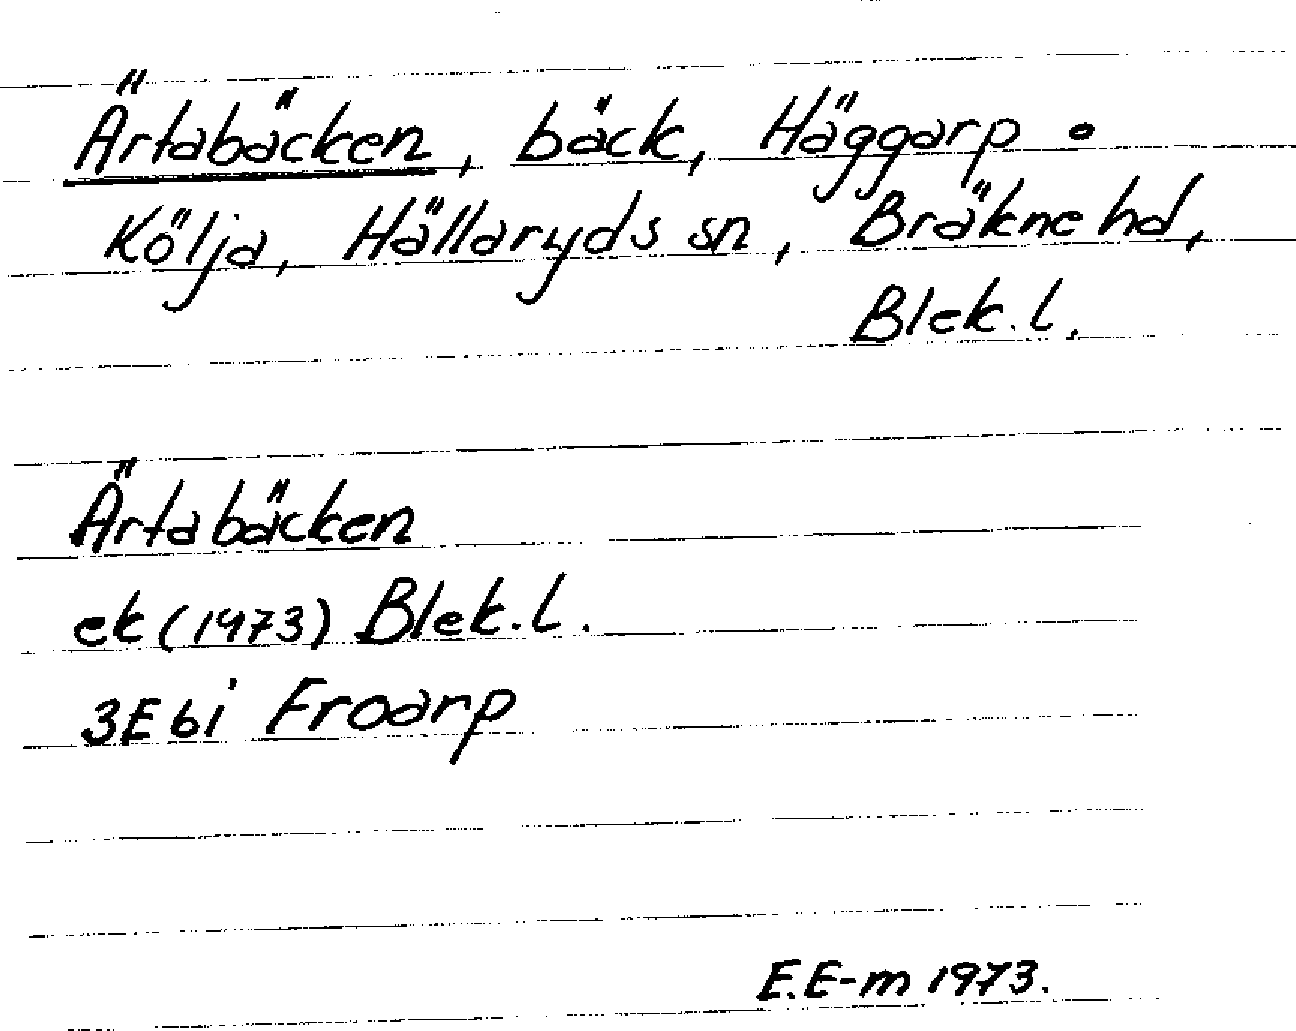 Ärtabäcken, bäck, Häggarp o
Kölja, Hällaryds sn, Bräkne hd,
Blek. l.
Ärtabäcken
ek (1973) Blek. l.
3E bi Froarp
E.E-m 1973.